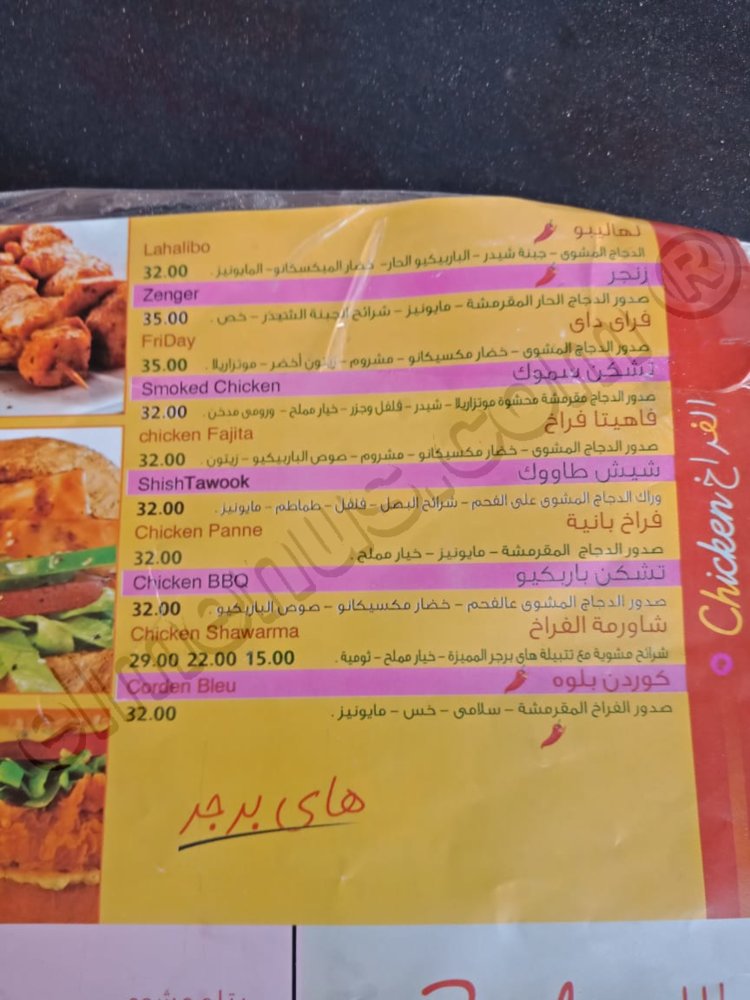 Lahalibo لهاليبو
الدجاج المشوى - جبنة شيدر - الباربيكيو الحار - خضار الميكسكانو - المايونيز . 32.00
Zenger زنجر
صدور الدجاج الحار المقرمشة - مايونيز - شرائح الجبنة الشيدر - خص . 35.00
FriDay فراى داى
صدور الدجاج المشوى - خضار مكسيكانو - مشروم - زيتون أخضر - موتزاريلا . 35.00
Smoked Chicken تشكن سموك
صدور الدجاج مقرمشة محشوة موتزاريلا - شيدر - فلفل وجزر - خيار مملح - ورومى مدخن . 32.00
chicken Fajita فاهيتا فراخ
صدور الدجاج المشوى - خضار مكسيكانو - مشروم - صوص الباربيكيو - زيتون . 32.00
ShishTawook شيش طاووك
وراك الدجاج المشوى على الفحم - شرائح البصل - فلفل - طماطم - مايونيز . 32.00
Chicken Panne فراخ بانية
صدور الدجاج المقرمشة - مايونيز - خيار مملح . 32.00
Chicken BBQ تشكن باربكيو
صدور الدجاج المشوى عالفحم - خضار مكسيكانو - صوص الباربكيو . 32.00
Chicken Shawarma شاورمة الفراخ
شرائح مشوية مع تتبيلة هاى برجر المميزة - خيار مملح - ثومية . 29.00 22.00 15.00
Corden Bleu كوردن بلوه
صدور الفراخ المقرمشة - سلامى - خس - مايونيز . 32.00
هاى برجر
Chicken الفراخ
elmenus.com ®